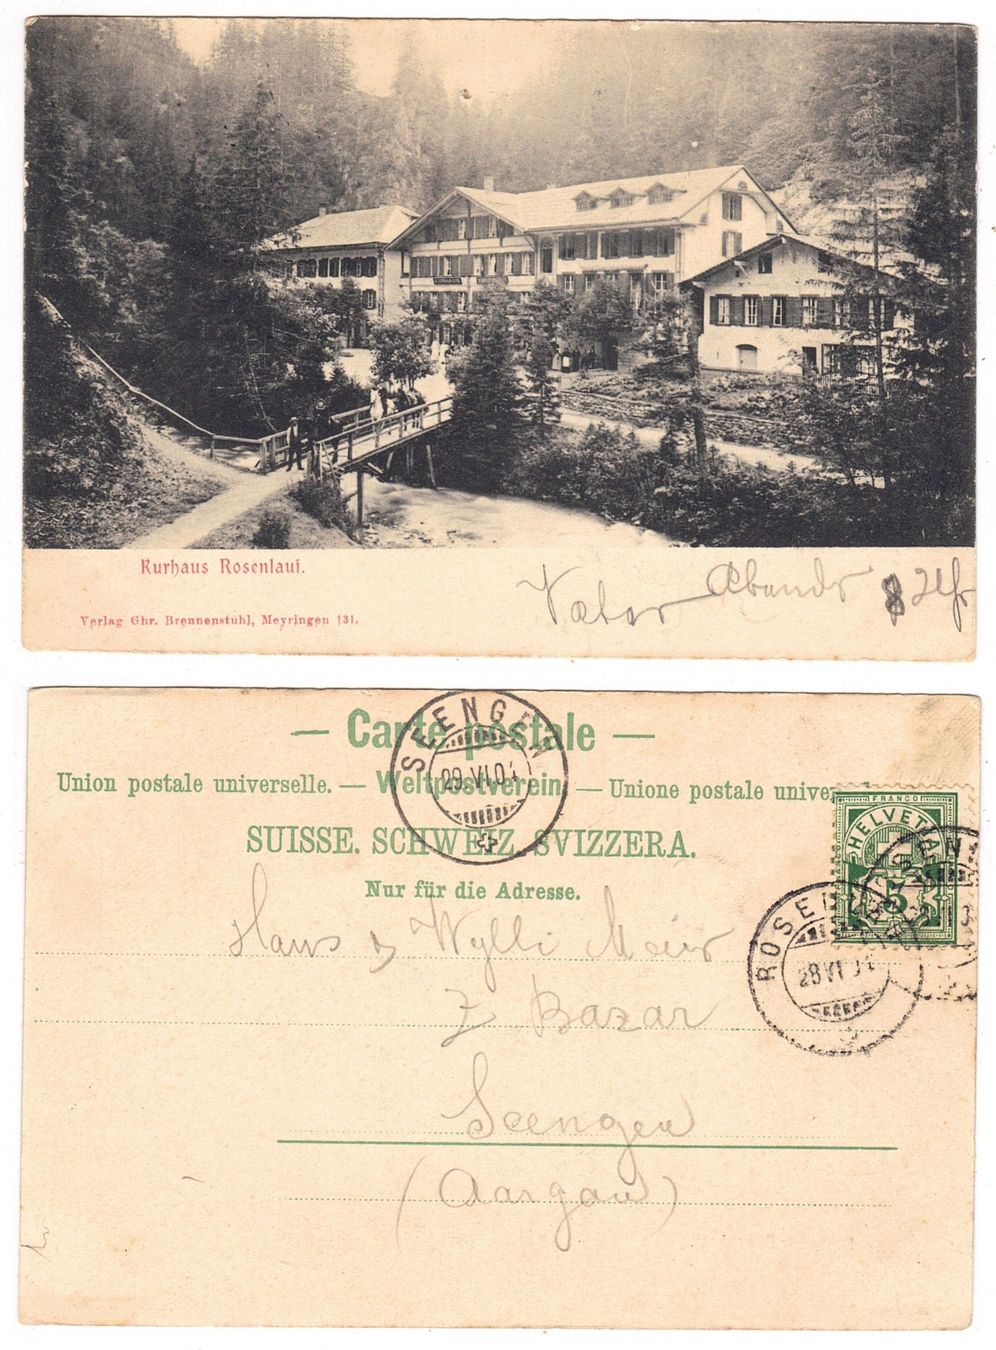 Kurhaus Rosenlaui.
Vater Abends 8 Uhr
Verlag Chr. Brennenstuhl, Meyringen 131.
— Carte postale —
SEENGEN
29.VI.04
Union postale universelle. — Weltpostverein. — Unione postale unive
SUISSE. SCHWEIZ. SVIZZERA.
Nur für die Adresse.
FRANCO
HELVETIA
5
ROSENLAUI
28.VI.04
Hans & Willi Meier
z Bazar
Seengen
(Aargau)